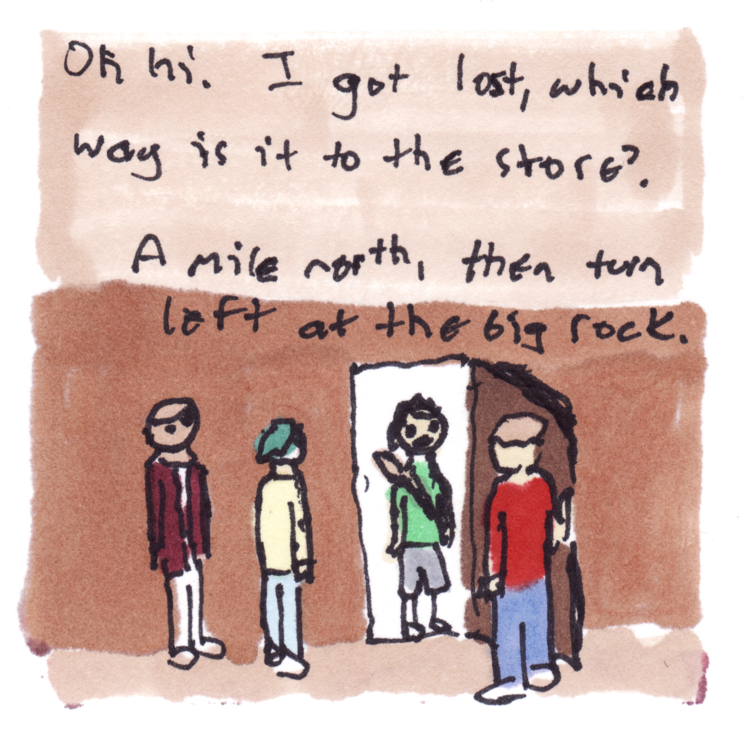 Oh hi. I got lost, which
way is it to the store?.
A mile north, then turn
left at the big rock.